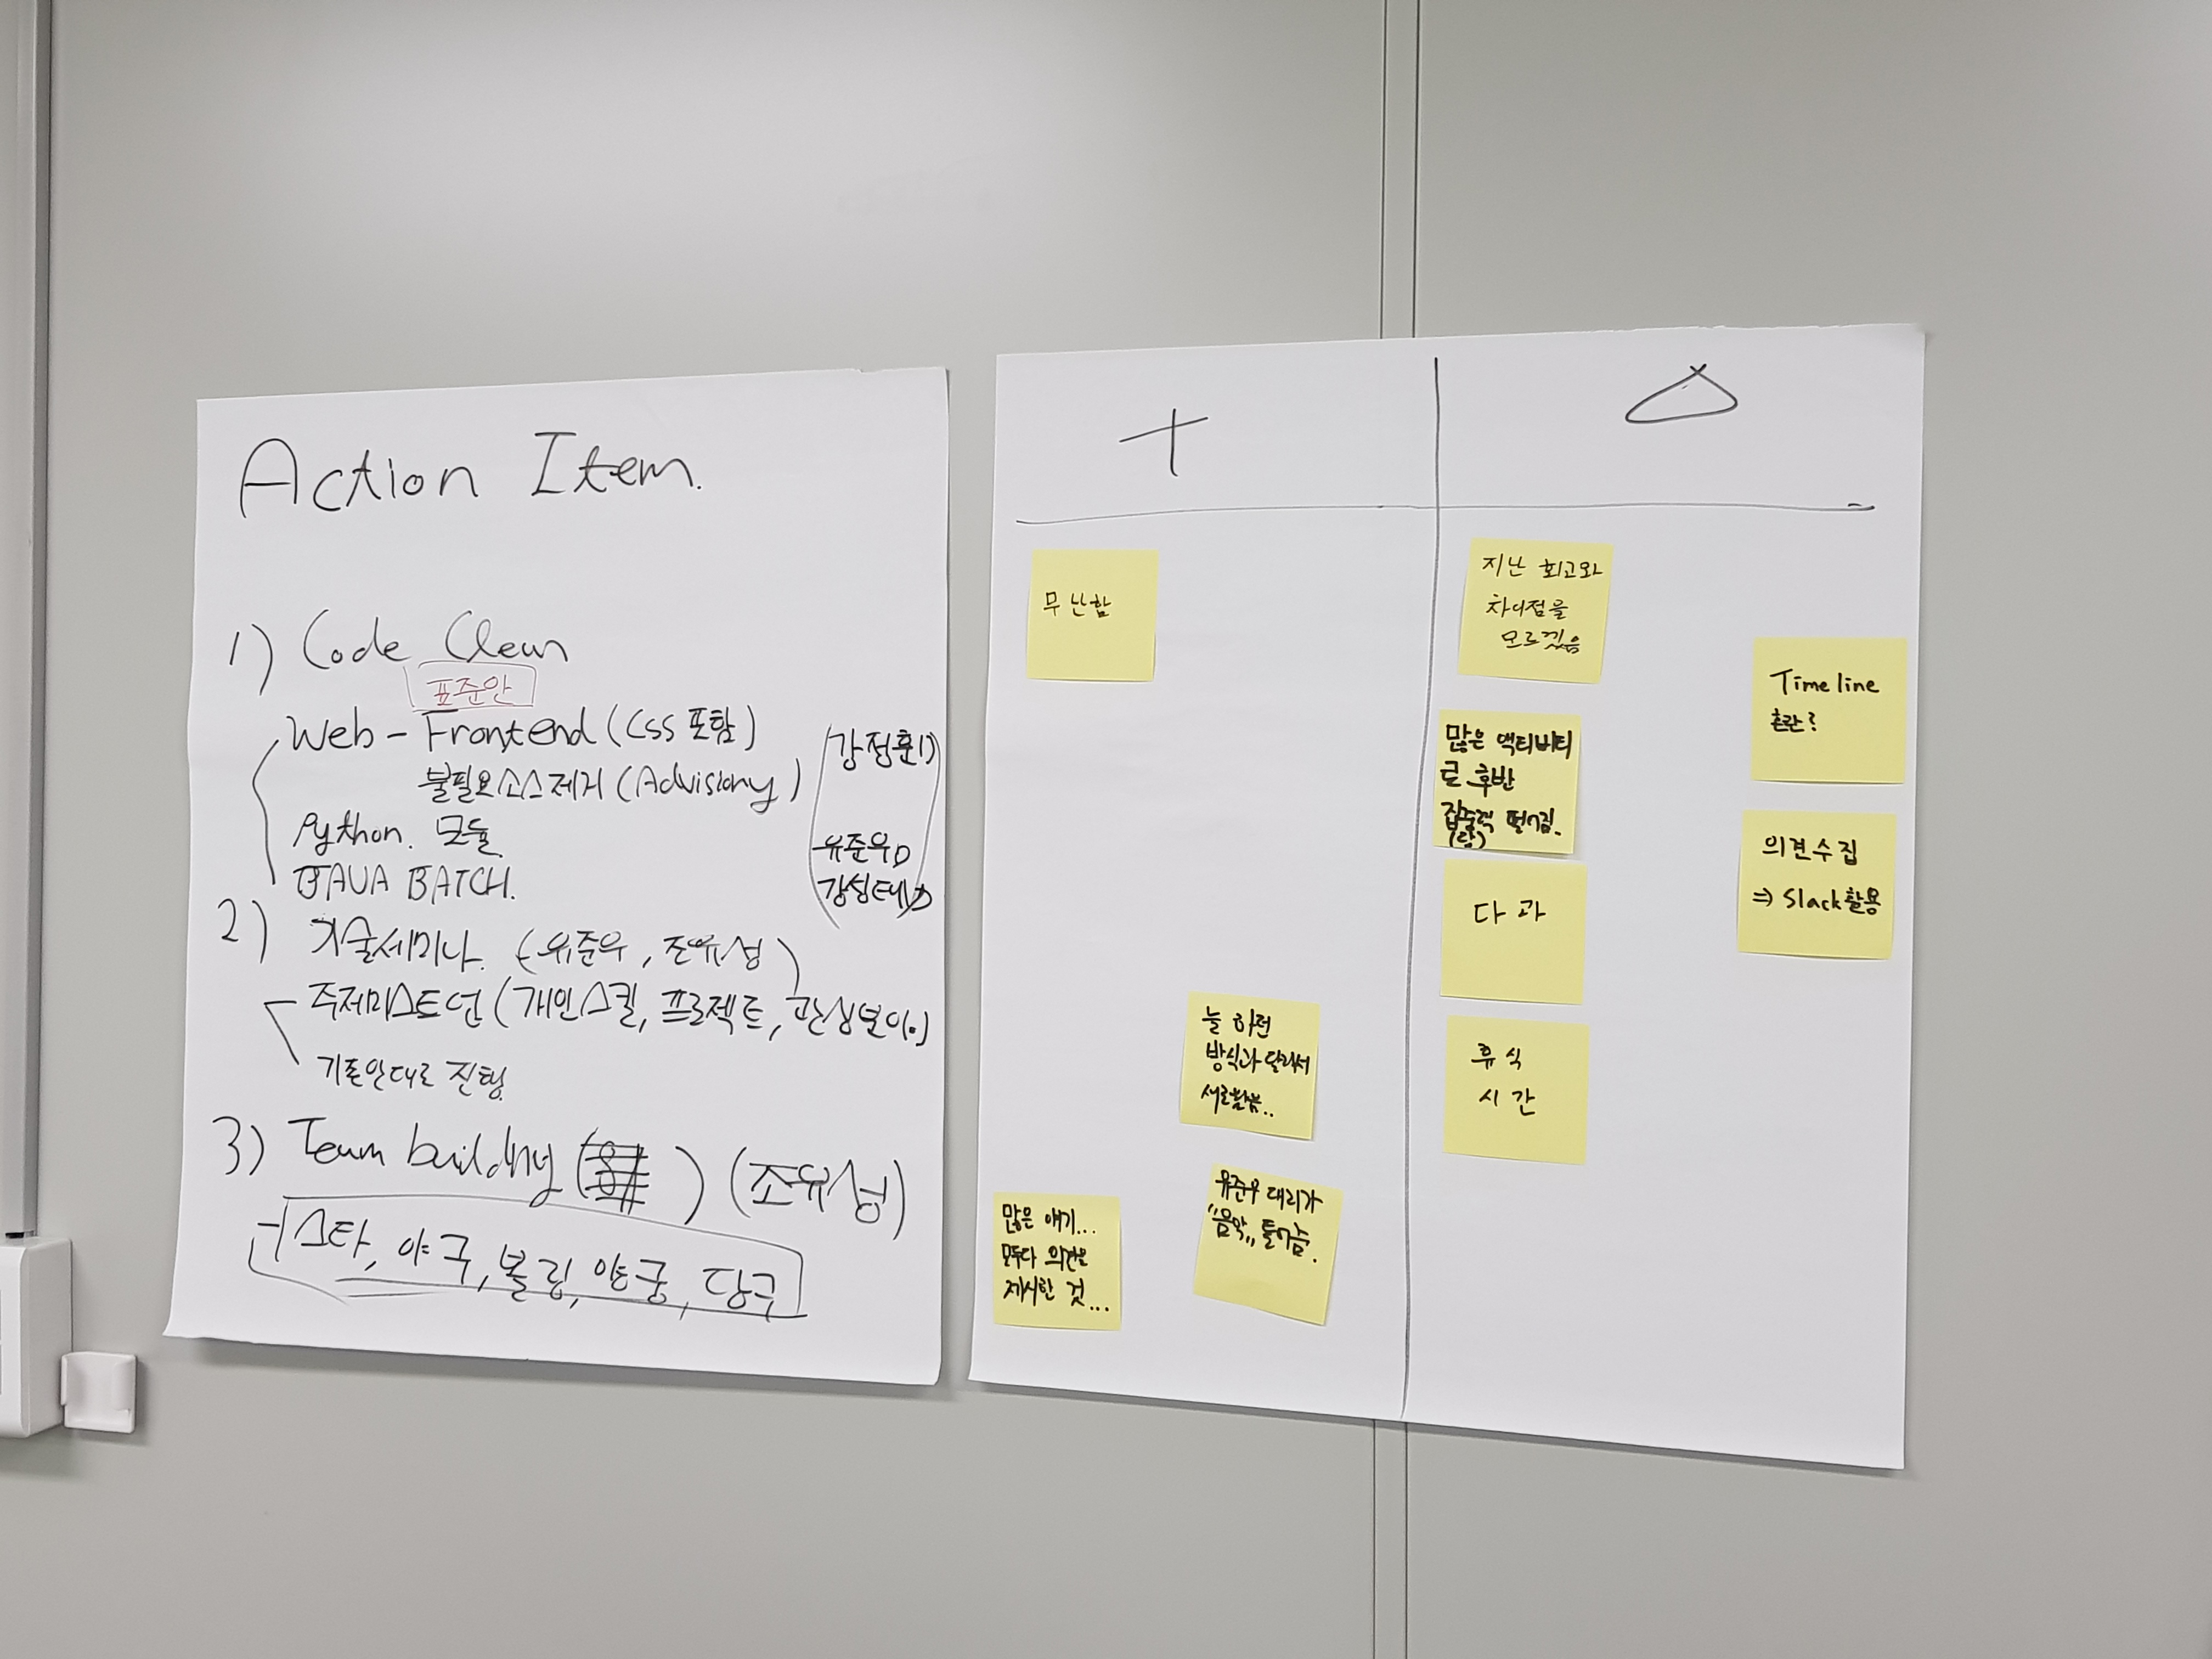 Action Item.
1) Code Clean
표준안
Web - Frontend (CSS 포함)
불필요소스제거 (Advisiory)
Python. 모듈
JAVA BATCH.
강정훈D
유준우D
강성태D
2) 기술세미나. (유준우, 조유성)
주제미스트언 (개인스킬, 프로젝트, 관심분야)
기존안대로 진행
3) Team building ( ) (조유성)
스타, 야구, 볼링, 양궁, 당구
+
△
무난함
늘 하던
방식과 달라서
새로웠음..
많은 얘기...
모두다 의견을
제시한 것...
유준우 대리가
"음악" 틀어줌.
지난 회고와
차이점을
모르겠음
많은 액티비티
로 후반
집중력 떨어짐.
(당)
다과
휴식
시간
Timeline
혼란?
의견수집
⇒ Slack활용